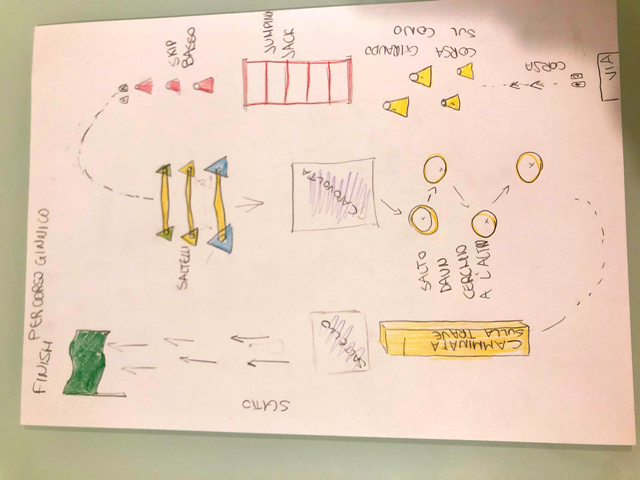 PERCORSO GINNICO
VIA
CORSA
CORSA
GIRANDO
SUL CONO
JUMPING
JACK
SKIP
BASSO
SALTELLI
CAPOVOLTA
SALTO
DA UN
CERCHIO
A L'ALTRO
CAMMINATA
SULLA TRAVE
SCATTO
FINISH